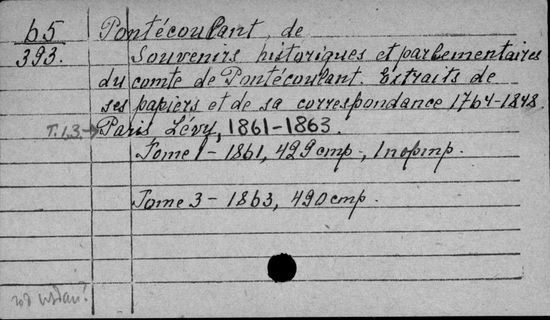 b5
393.
Pontécoulant, de
Souvenirs historiques et parlementaires
du comte de Pontécoulant. Extraits de
ses papiers et de sa correspondance 1764-1848.
T.1.3. → Paris Lévy, 1861-1863.
Tome 1 - 1861, 429 стр., 1 портр.
Tome 3 - 1863, 490 стр.
год издан?